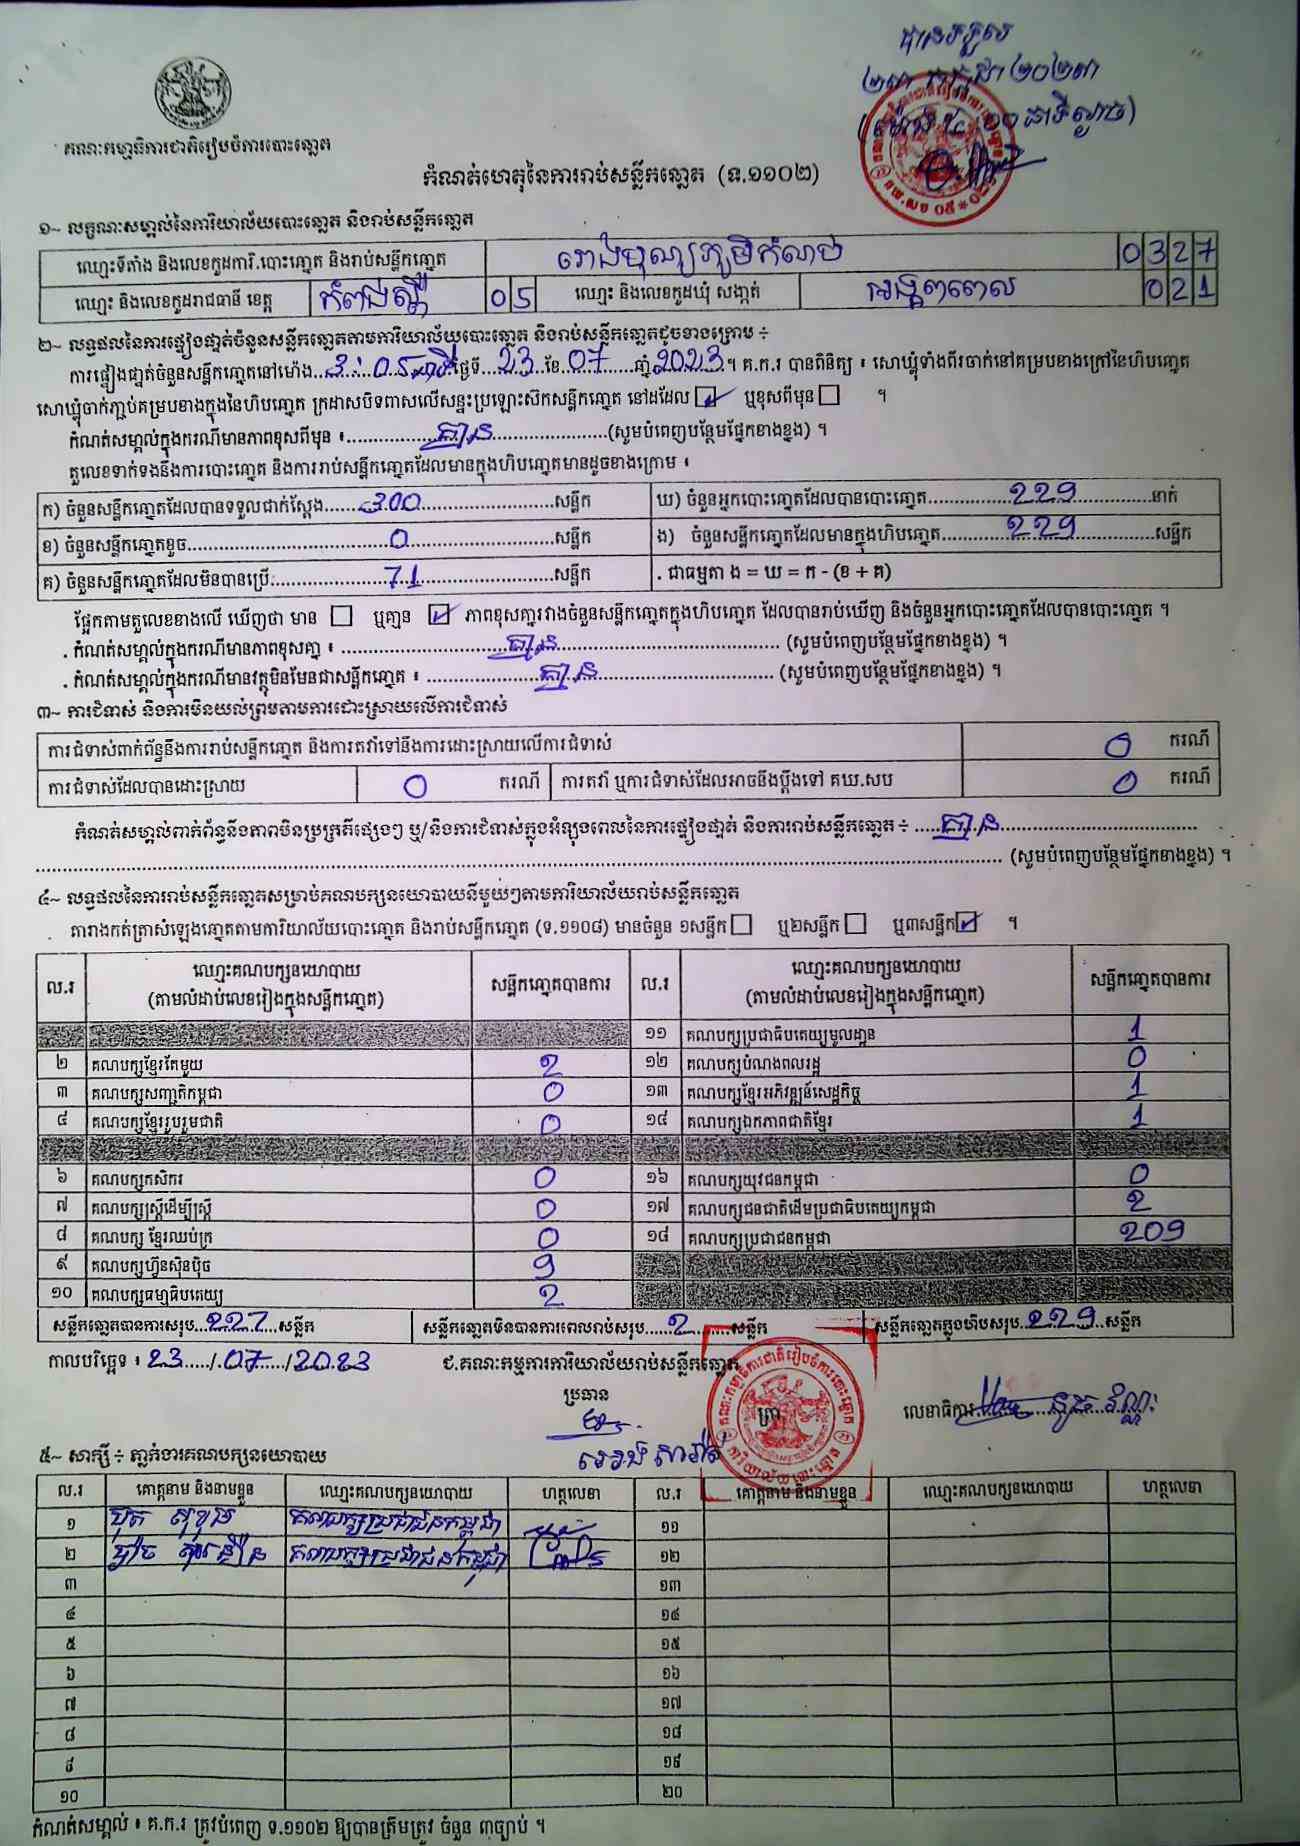 បានទទួល
២៣ កក្កដា ២០២៣
គណៈកម្មាធិការជាតិរៀបចំការបោះឆ្នោត
កំណត់ហេតុនៃការរាប់សន្លឹកឆ្នោត (ទ.១១០២)
១~ លក្ខណៈសម្គាល់នៃការិយាល័យបោះឆ្នោត និងរាប់សន្លឹកឆ្នោត
ឈ្មោះទីតាំង និងលេខកូដការិ.បោះឆ្នោត និងរាប់សន្លឹកឆ្នោត រោងបុណ្យភូមិកំណប់ 0327
ឈ្មោះ និងលេខកូដរាជធានី ខេត្ត កំពង់ស្ពឺ 05 ឈ្មោះ និងលេខកូដឃុំ សង្កាត់ អង្គពពេល 021
២~ លទ្ធផលនៃការផ្ទៀងផ្ទាត់ចំនួនសន្លឹកឆ្នោតតាមការិយាល័យបោះឆ្នោត និងរាប់សន្លឹកឆ្នោតដូចខាងក្រោម ÷
ការផ្ទៀងផ្ទាត់ចំនួនសន្លឹកឆ្នោតនៅម៉ោង 3:05នាទី ថ្ងៃទី 23 ខែ 07 ឆ្នាំ 2023 ។ គ.ក.រ បានពិនិត្យ ៖ សោឃ្លុំទាំងពីរចាក់នៅគម្របខាងក្រៅនៃហិបឆ្នោត
សោឃ្លុំចាក់ភ្ជាប់គម្របខាងក្នុងនៃហិបឆ្នោត ក្រដាសបិទពាសលើសន្ទះប្រឡោះស៊កសន្លឹកឆ្នោត នៅដដែល ☑ ឬខុសពីមុន ☐ ។
កំណត់សម្គាល់ក្នុងករណីមានភាពខុសពីមុន ៖ គ្មាន (សូមបំពេញបន្ថែមផ្នែកខាងខ្នង) ។
តួលេខទាក់ទងនឹងការបោះឆ្នោត និងការរាប់សន្លឹកឆ្នោតដែលមានក្នុងហិបឆ្នោតមានដូចខាងក្រោម ៖
ក) ចំនួនសន្លឹកឆ្នោតដែលបានទទួលជាក់ស្តែង 300 សន្លឹក ឃ) ចំនួនអ្នកបោះឆ្នោតដែលបានបោះឆ្នោត 229 នាក់
ខ) ចំនួនសន្លឹកឆ្នោតខូច 0 សន្លឹក ង) ចំនួនសន្លឹកឆ្នោតដែលមានក្នុងហិបឆ្នោត 229 សន្លឹក
គ) ចំនួនសន្លឹកឆ្នោតដែលមិនបានប្រើ 71 សន្លឹក . ជាធម្មតា ង = ឃ = ក - (ខ + គ)
ផ្អែកតាមតួលេខខាងលើ ឃើញថា មាន ☐ ឬគ្មាន ☑ ភាពខុសគ្នារវាងចំនួនសន្លឹកឆ្នោតក្នុងហិបឆ្នោត ដែលបានរាប់ឃើញ និងចំនួនអ្នកបោះឆ្នោតដែលបានបោះឆ្នោត ។
. កំណត់សម្គាល់ក្នុងករណីមានភាពខុសគ្នា ៖ គ្មាន (សូមបំពេញបន្ថែមផ្នែកខាងខ្នង) ។
. កំណត់សម្គាល់ក្នុងករណីមានវត្ថុមិនមែនជាសន្លឹកឆ្នោត ៖ គ្មាន (សូមបំពេញបន្ថែមផ្នែកខាងខ្នង) ។
៣~ ការជំទាស់ និងការមិនយល់ព្រមតាមការដោះស្រាយលើការជំទាស់
ការជំទាស់ពាក់ព័ន្ធនឹងការរាប់សន្លឹកឆ្នោត និងការតវ៉ាទៅនឹងការដោះស្រាយលើការជំទាស់ 0 ករណី
ការជំទាស់ដែលបានដោះស្រាយ 0 ករណី ការតវ៉ា ឬការជំទាស់ដែលអាចនឹងប្តឹងទៅ គឃ.សប 0 ករណី
កំណត់សម្គាល់ពាក់ព័ន្ធនឹងភាពមិនប្រក្រតីផ្សេងៗ ឬ/និងការជំទាស់ក្នុងអំឡុងពេលនៃការផ្ទៀងផ្ទាត់ និងការរាប់សន្លឹកឆ្នោត ÷ គ្មាន
(សូមបំពេញបន្ថែមផ្នែកខាងខ្នង) ។
៤~ លទ្ធផលនៃការរាប់សន្លឹកឆ្នោតសម្រាប់គណបក្សនយោបាយនីមួយៗតាមការិយាល័យរាប់សន្លឹកឆ្នោត
តារាងកត់ត្រាសំឡេងឆ្នោតតាមការិយាល័យបោះឆ្នោត និងរាប់សន្លឹកឆ្នោត (ទ.១១០៨) មានចំនួន ១សន្លឹក ☐ ឬ២សន្លឹក ☐ ឬ៣សន្លឹក ☑ ។
ល.រ ឈ្មោះគណបក្សនយោបាយ (តាមលំដាប់លេខរៀងក្នុងសន្លឹកឆ្នោត) សន្លឹកឆ្នោតបានការ ល.រ ឈ្មោះគណបក្សនយោបាយ (តាមលំដាប់លេខរៀងក្នុងសន្លឹកឆ្នោត) សន្លឹកឆ្នោតបានការ
១១ គណបក្សប្រជាធិបតេយ្យមូលដ្ឋាន 1
២ គណបក្សខ្មែរតែមួយ 2 ១២ គណបក្សបំណងពលរដ្ឋ 0
៣ គណបក្សសញ្ជាតិកម្ពុជា 0 ១៣ គណបក្សខ្មែរអភិវឌ្ឍន៍សេដ្ឋកិច្ច 1
៤ គណបក្សខ្មែររួបរួមជាតិ 0 ១៤ គណបក្សឯកភាពជាតិខ្មែរ 1
៦ គណបក្សកសិករ 0 ១៦ គណបក្សយុវជនកម្ពុជា 0
៧ គណបក្សស្ត្រីដើម្បីស្ត្រី 0 ១៧ គណបក្សជនជាតិដើមប្រជាធិបតេយ្យកម្ពុជា 2
៨ គណបក្ស ខ្មែរឈប់ក្រ 0 ១៨ គណបក្សប្រជាជនកម្ពុជា 209
៩ គណបក្សហ៊្វុនស៊ិនប៉ិច 9
១០ គណបក្សធម្មាធិបតេយ្យ 2
សន្លឹកឆ្នោតបានការសរុប 227 សន្លឹក សន្លឹកឆ្នោតមិនបានការពេលរាប់សរុប 2 សន្លឹក សន្លឹកឆ្នោតក្នុងហិបសរុប 229 សន្លឹក
កាលបរិច្ឆេទ ៖ 23/07/2023 ជ.គណៈកម្មការការិយាល័យរាប់សន្លឹកឆ្នោត
ប្រធាន ត្រា លេខាធិការ
៥~ សាក្សី ÷ ភ្នាក់ងារគណបក្សនយោបាយ
ល.រ គោត្តនាម និងនាមខ្លួន ឈ្មោះគណបក្សនយោបាយ ហត្ថលេខា ល.រ គោត្តនាម និងនាមខ្លួន ឈ្មោះគណបក្សនយោបាយ ហត្ថលេខា
១ គណបក្សប្រជាជនកម្ពុជា ១១
២ គណបក្សប្រជាជនកម្ពុជា ១២
៣ ១៣
៤ ១៤
៥ ១៥
៦ ១៦
៧ ១៧
៨ ១៨
៩ ១៩
១០ ២០
កំណត់សម្គាល់ ៖ គ.ក.រ ត្រូវបំពេញ ទ.១១០២ ឱ្យបានត្រឹមត្រូវ ចំនួន ៣ច្បាប់ ។